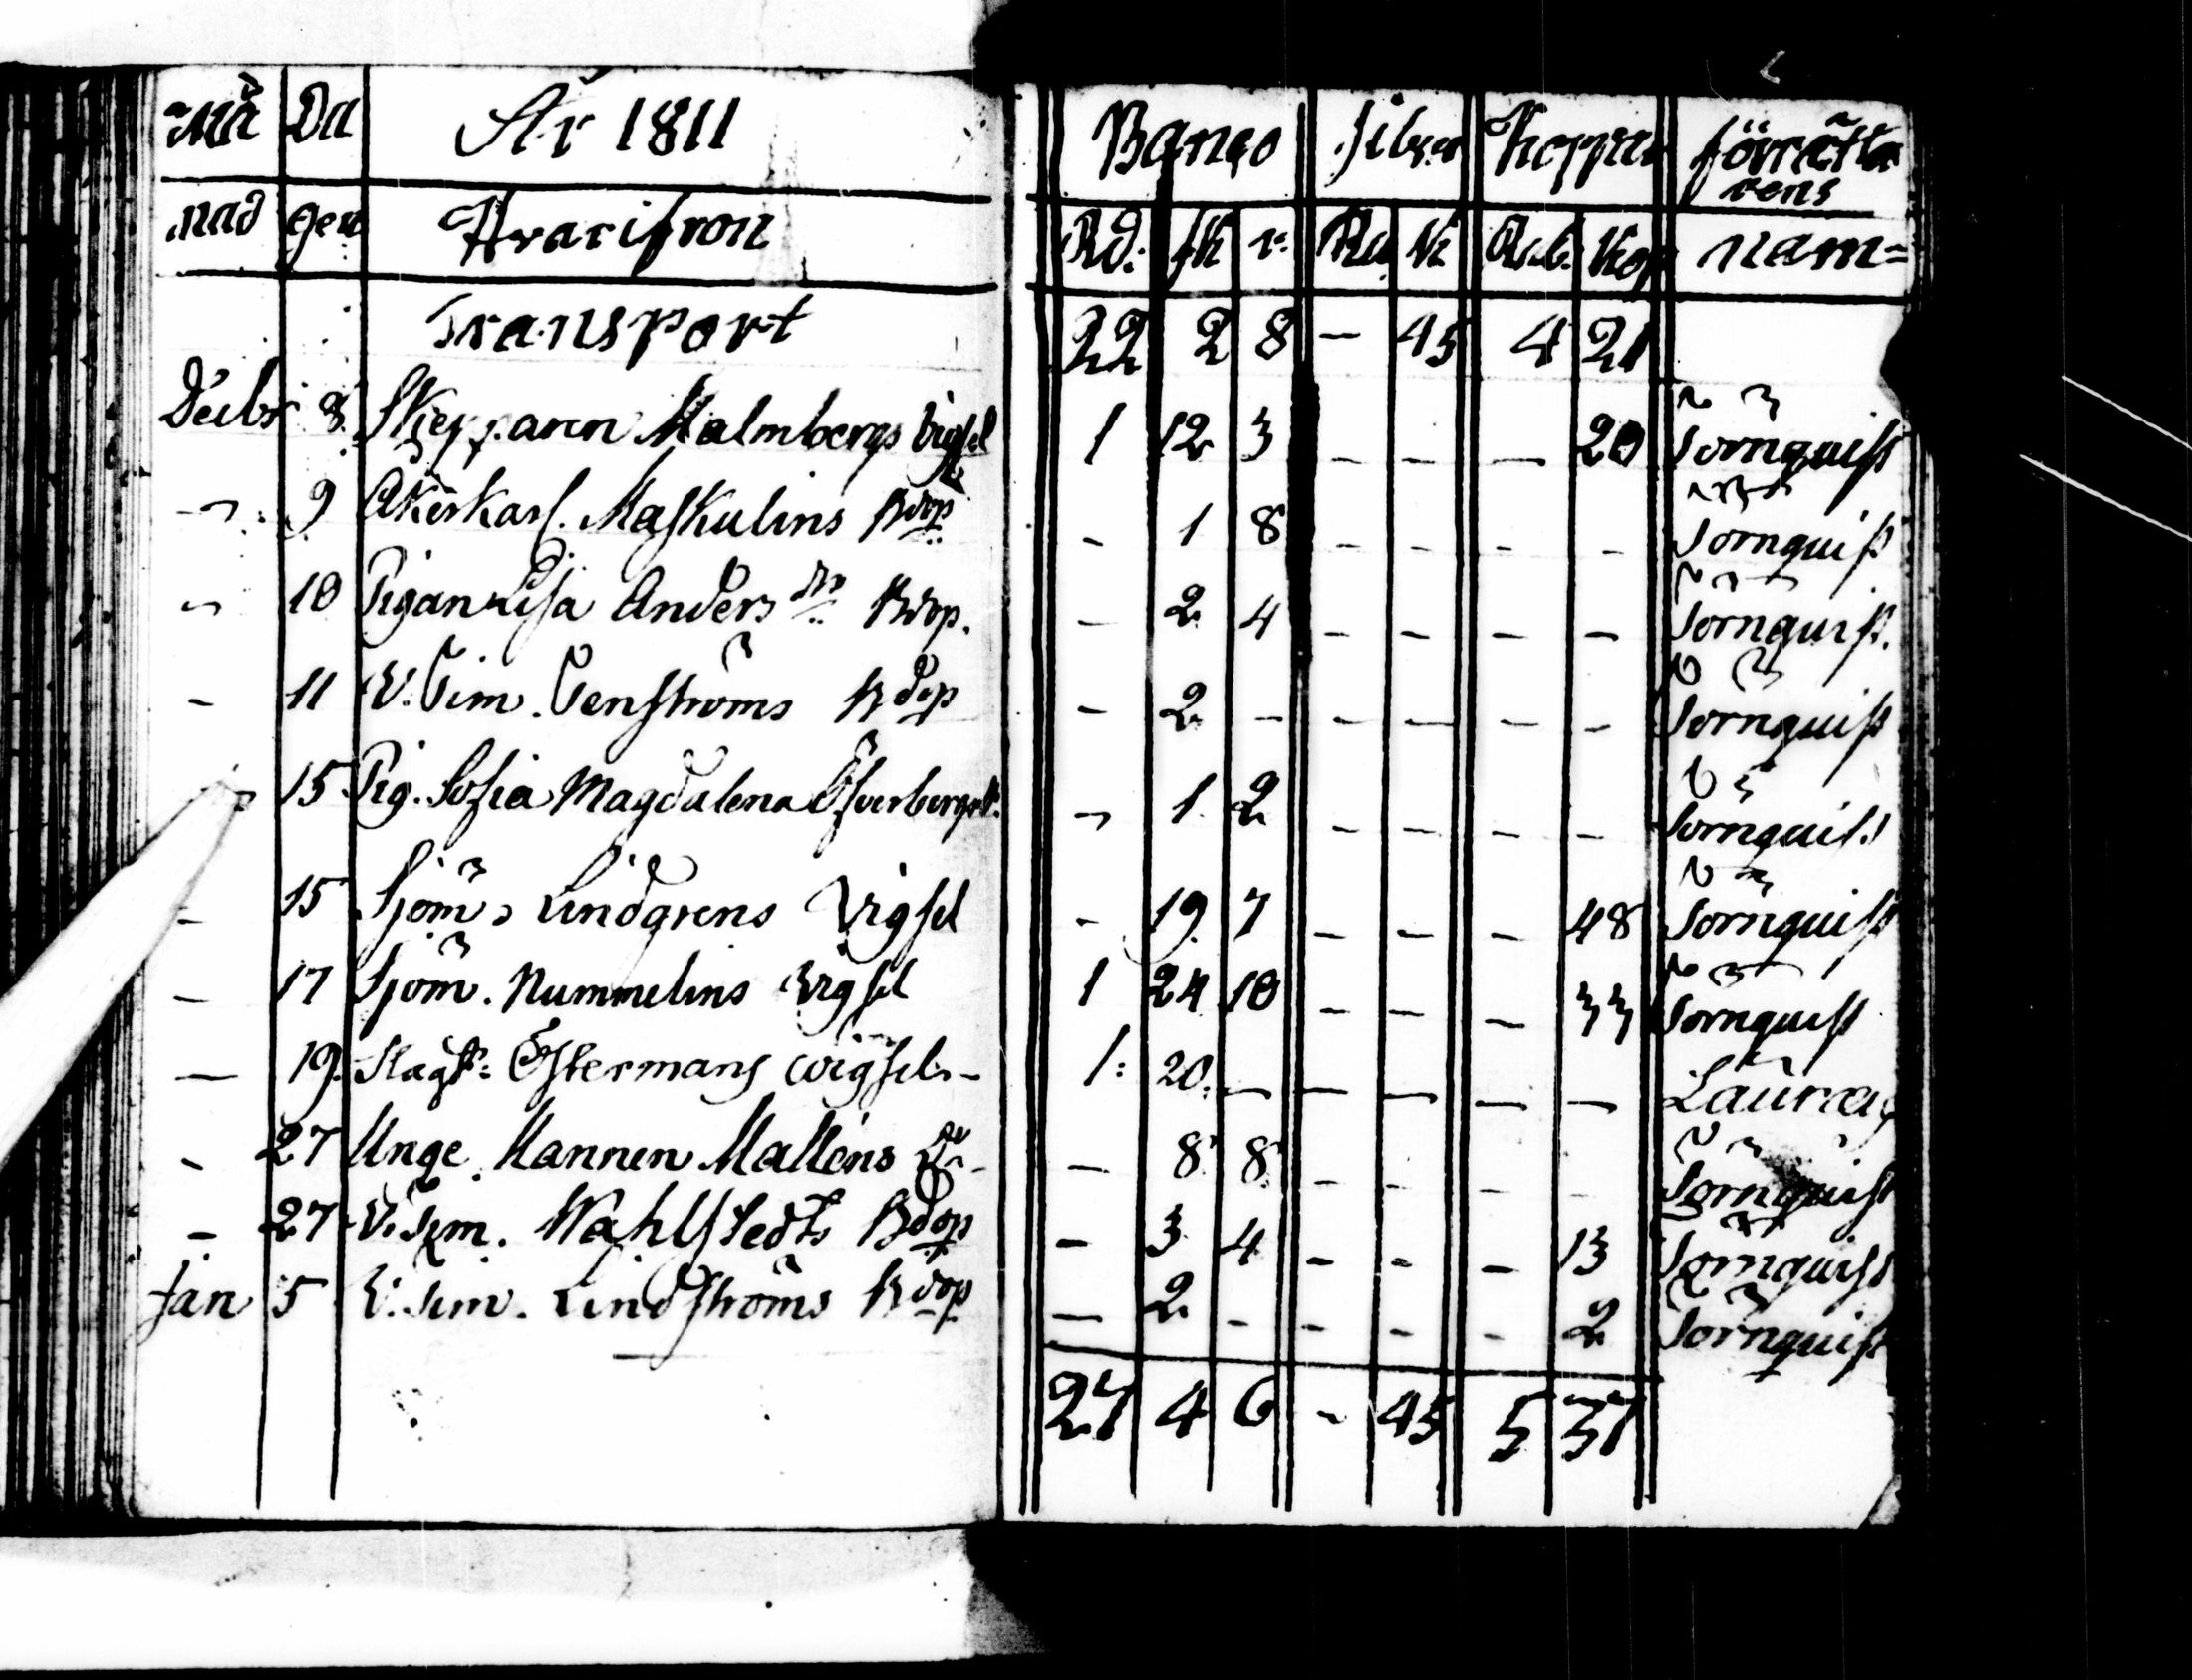 Må Da År 1811 Banco Silfver Koppar förrätta
rens
nad gen Hvarifron Rd: sk r: Ru k Rub. Kop nam=
Transport 22 2 8 – 45 4 21
Decbr 8. Skepparen Malmbergs vigsel 1 12 3 – – – 20 Törnquist
– 9 Åkerkarl. Maskulins Bdop – 1 8 – – – – Törnquist
– 10 Pigan Lisa Anders dr Bdop. – 2 4 – – – – Törnquist.
– 11 V. Tim. Tenströms Bdop – 2 – – – – – Törnquist
– 15 Pig. Sofia Magdalena – 1 2 – – – – Törnquist
– 15 Sjöm. Lindgrens Vigsel – 19 7 – – – 48 Törnquist
– 17 Sjöm. Nummelins Vigsel 1 24 10 – – – 33 Törnquist
– 19. Slagt: Östermans wigsel – 1: 20. – – – – –
– 27 Unge Mannen Malléns – 8 8 – – – – Törnquist
– 27 V. Tim. Wahlstedts Bdop – 3 4 – – – 13 Törnquist
Jan 5 V. Tim. Lindströms Bdop – 2 – – – – 2 Törnquist
27 4 6 – 45 5 37